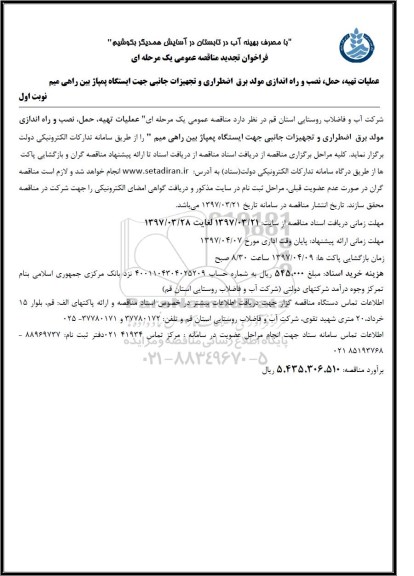 "با مصرف بهینه آب در تابستان در آسایش همدیگر بکوشیم"
فراخوان تجدید مناقصه عمومی یک مرحله ای
عملیات تهیه، حمل، نصب و راه اندازی مولد برق اضطراری و تجهیزات جانبی جهت ایستگاه پمپاژ بین راهی میم
نوبت اول
شرکت آب و فاضلاب روستایی استان قم در نظر دارد مناقصه عمومی یک مرحله ای" عملیات تهیه، حمل، نصب و راه اندازی
مولد برق اضطراری و تجهیزات جانبی جهت ایستگاه پمپاژ بین راهی میم " را از طریق سامانه تدارکات الکترونیکی دولت
برگزار نماید. کلیه مراحل برگزاری مناقصه از دریافت اسناد مناقصه از دریافت اسناد تا ارائه پیشنهاد مناقصه گران و بازگشایی پاکت
ها از طریق درگاه سامانه تدارکات الکترونیکی دولت(ستاد) به آدرس: www.setadiran.ir انجام خواهد شد و لازم است مناقصه
گران در صورت عدم عضویت قبلی، مراحل ثبت نام در سایت مذکور و دریافت گواهی امضای الکترونیکی را جهت شرکت در مناقصه
محقق سازند. تاریخ انتشار مناقصه در سامانه تاریخ ۱۳۹۷/۰۳/۲۱ می‌باشد.
مهلت زمانی دریافت اسناد مناقصه از سایت ۱۳۹۷/۰۳/۲۱ لغایت ۱۳۹۷/۰۳/۲۸
مهلت زمانی ارائه پیشنهاد: پایان وقت اداری مورخ ۱۳۹۷/۰۴/۰۷
زمان بازگشایی پاکت ها: ۱۳۹۷/۰۴/۰۹ ساعت ۸/۳۰ صبح
هزینه خرید اسناد: مبلغ ۵۴۵,۰۰۰ ریال به شماره حساب ۴۰۰۱۱۰۴۳۰۴۰۲۵۲۰۹ نزد بانک مرکزی جمهوری اسلامی بنام
تمرکز وجوه درآمد شرکتهای دولتی (شرکت آب و فاضلاب روستایی استان قم)
اطلاعات تماس دستگاه مناقصه گزار جهت دریافت اطلاعات بیشتر در خصوص اسناد مناقصه و ارائه پاکتهای الف: قم، بلوار ۱۵
خرداد، ۲۰ متری شهید تقوی، شرکت آب و فاضلاب روستایی استان قم و تلفن: ۳۷۷۸۰۱۷۲ و ۳۷۷۸۰۱۷۱- ۰۲۵
اطلاعات تماس سامانه ستاد جهت انجام مراحل عضویت در سامانه: مرکز تماس ۴۱۹۳۴-۰۲۱ دفتر ثبت نام: ۸۸۹۶۹۷۳۷ -
۸۵۱۹۳۷۶۸ ۰۲۱
پایگاه اطلاع رسانی مناقصه و مزایده
۰۲۱-۸۸۳۴۹۶۷۰-۵
برآورد مناقصه: ۵.۴۳۵.۳۰۶.۵۱۰ ریال